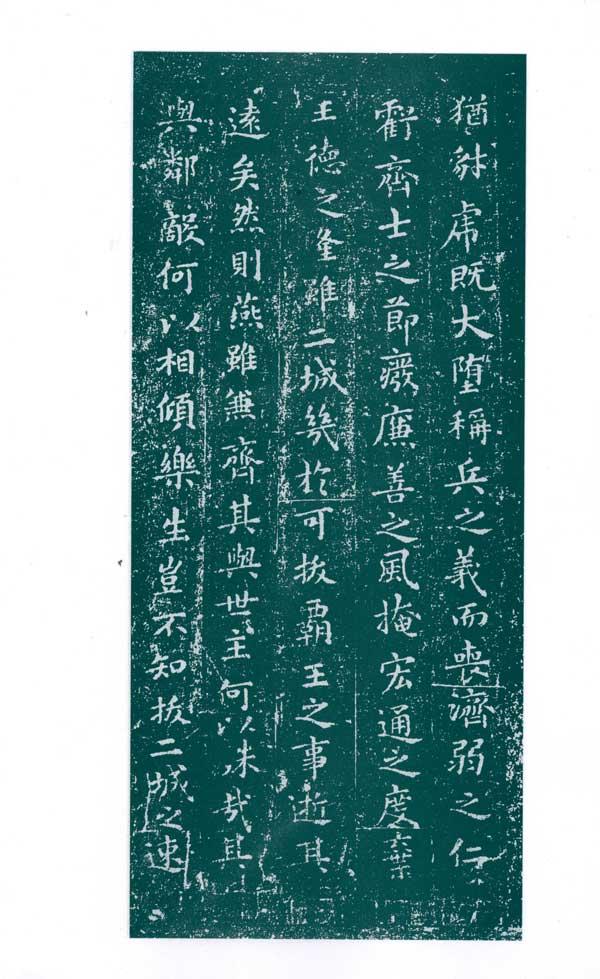 猶豺虎既大墮稱兵之義而喪濟弱之仁
虧齊士之節癈廉善之風掩宏通之度棄
王德之隆雖二城幾於可拔霸王之事逝其
遠矣然則燕雖兼齊其與世主何以殊哉其
與鄰敵何以相傾樂生豈不知拔二城之速